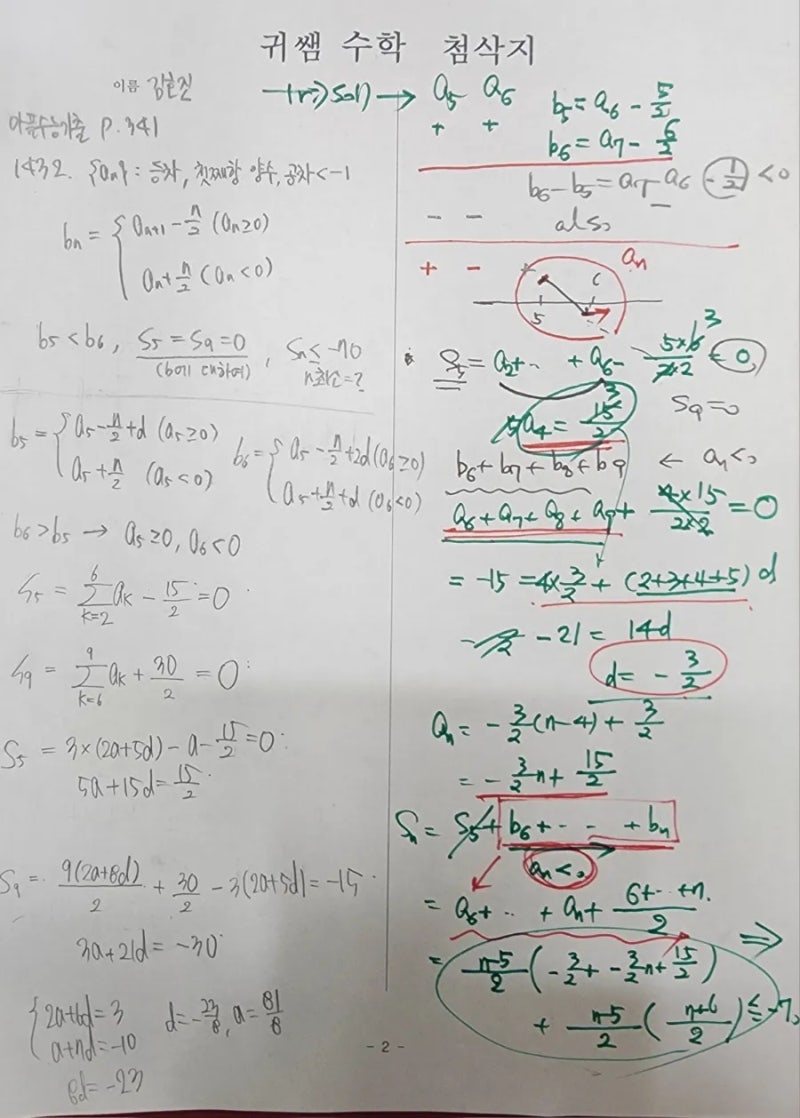 귀쌤 수학 첨삭지
이름
아름수능기출 P.341
1432. {an} : 등차, 첫째항 양수, 공차<-1
bn = { an+1 - n/2 (an≥0)
an + n/2 (an<0)
b5 < b6, S5 = S9 = 0, Sn ≤ -70
(b에 대하여) n최소=?
b5 = { a5 - n/2 + d (a5≥0)
a5 + n/2 (a5<0)
b6 = { a5 - n/2 + 2d (a6≥0)
a5 + n/2 + d (a6<0)
b6 > b5 → a5≥0, a6<0
S5 = 6Σk=2 ak - 15/2 = 0
S9 = 9Σk=6 ak + 30/2 = 0
S5 = 3×(2a+5d) - a - 15/2 = 0
5a+15d = 15/2
S9 = 9(2a+8d)/2 + 30/2 - 3(2a+5d) = -15
3a+21d = -30
{ 2a+6d = 3
a+7d = -10
d = -23/8, a = 81/8
8d = -23
- 2 -
→ a5 a6
+ +
b5 = a6 - 5/2
b6 = a7 - 6/2
b6 - b5 = a7 - a6 - 1/2 < 0
- - also
+ -
an
5 6
S5 = a2 + ·· + a6 - 5×6/2×2 = 0, 3
5a4 = 15/2 3
S9 = 0
b6 + b7 + b8 + b9 ← an<0
a6 + a7 + a8 + a9 + 4×15/2×2 = 0
= -15 = 4×3/2 + (2+3+4+5)d
-21 = 14d
d = -3/2
an = -3/2(n-4) + 3/2
= -3/2n + 15/2
Sn = S5 + b6 + ·· + bn
an<0
= a6 + ·· + an + 6+··+n/2 ⇒
= n-5/2 ( -3/2 + -3/2n + 15/2 )
+ n-5/2 ( n+6/2 ) ≤ -70